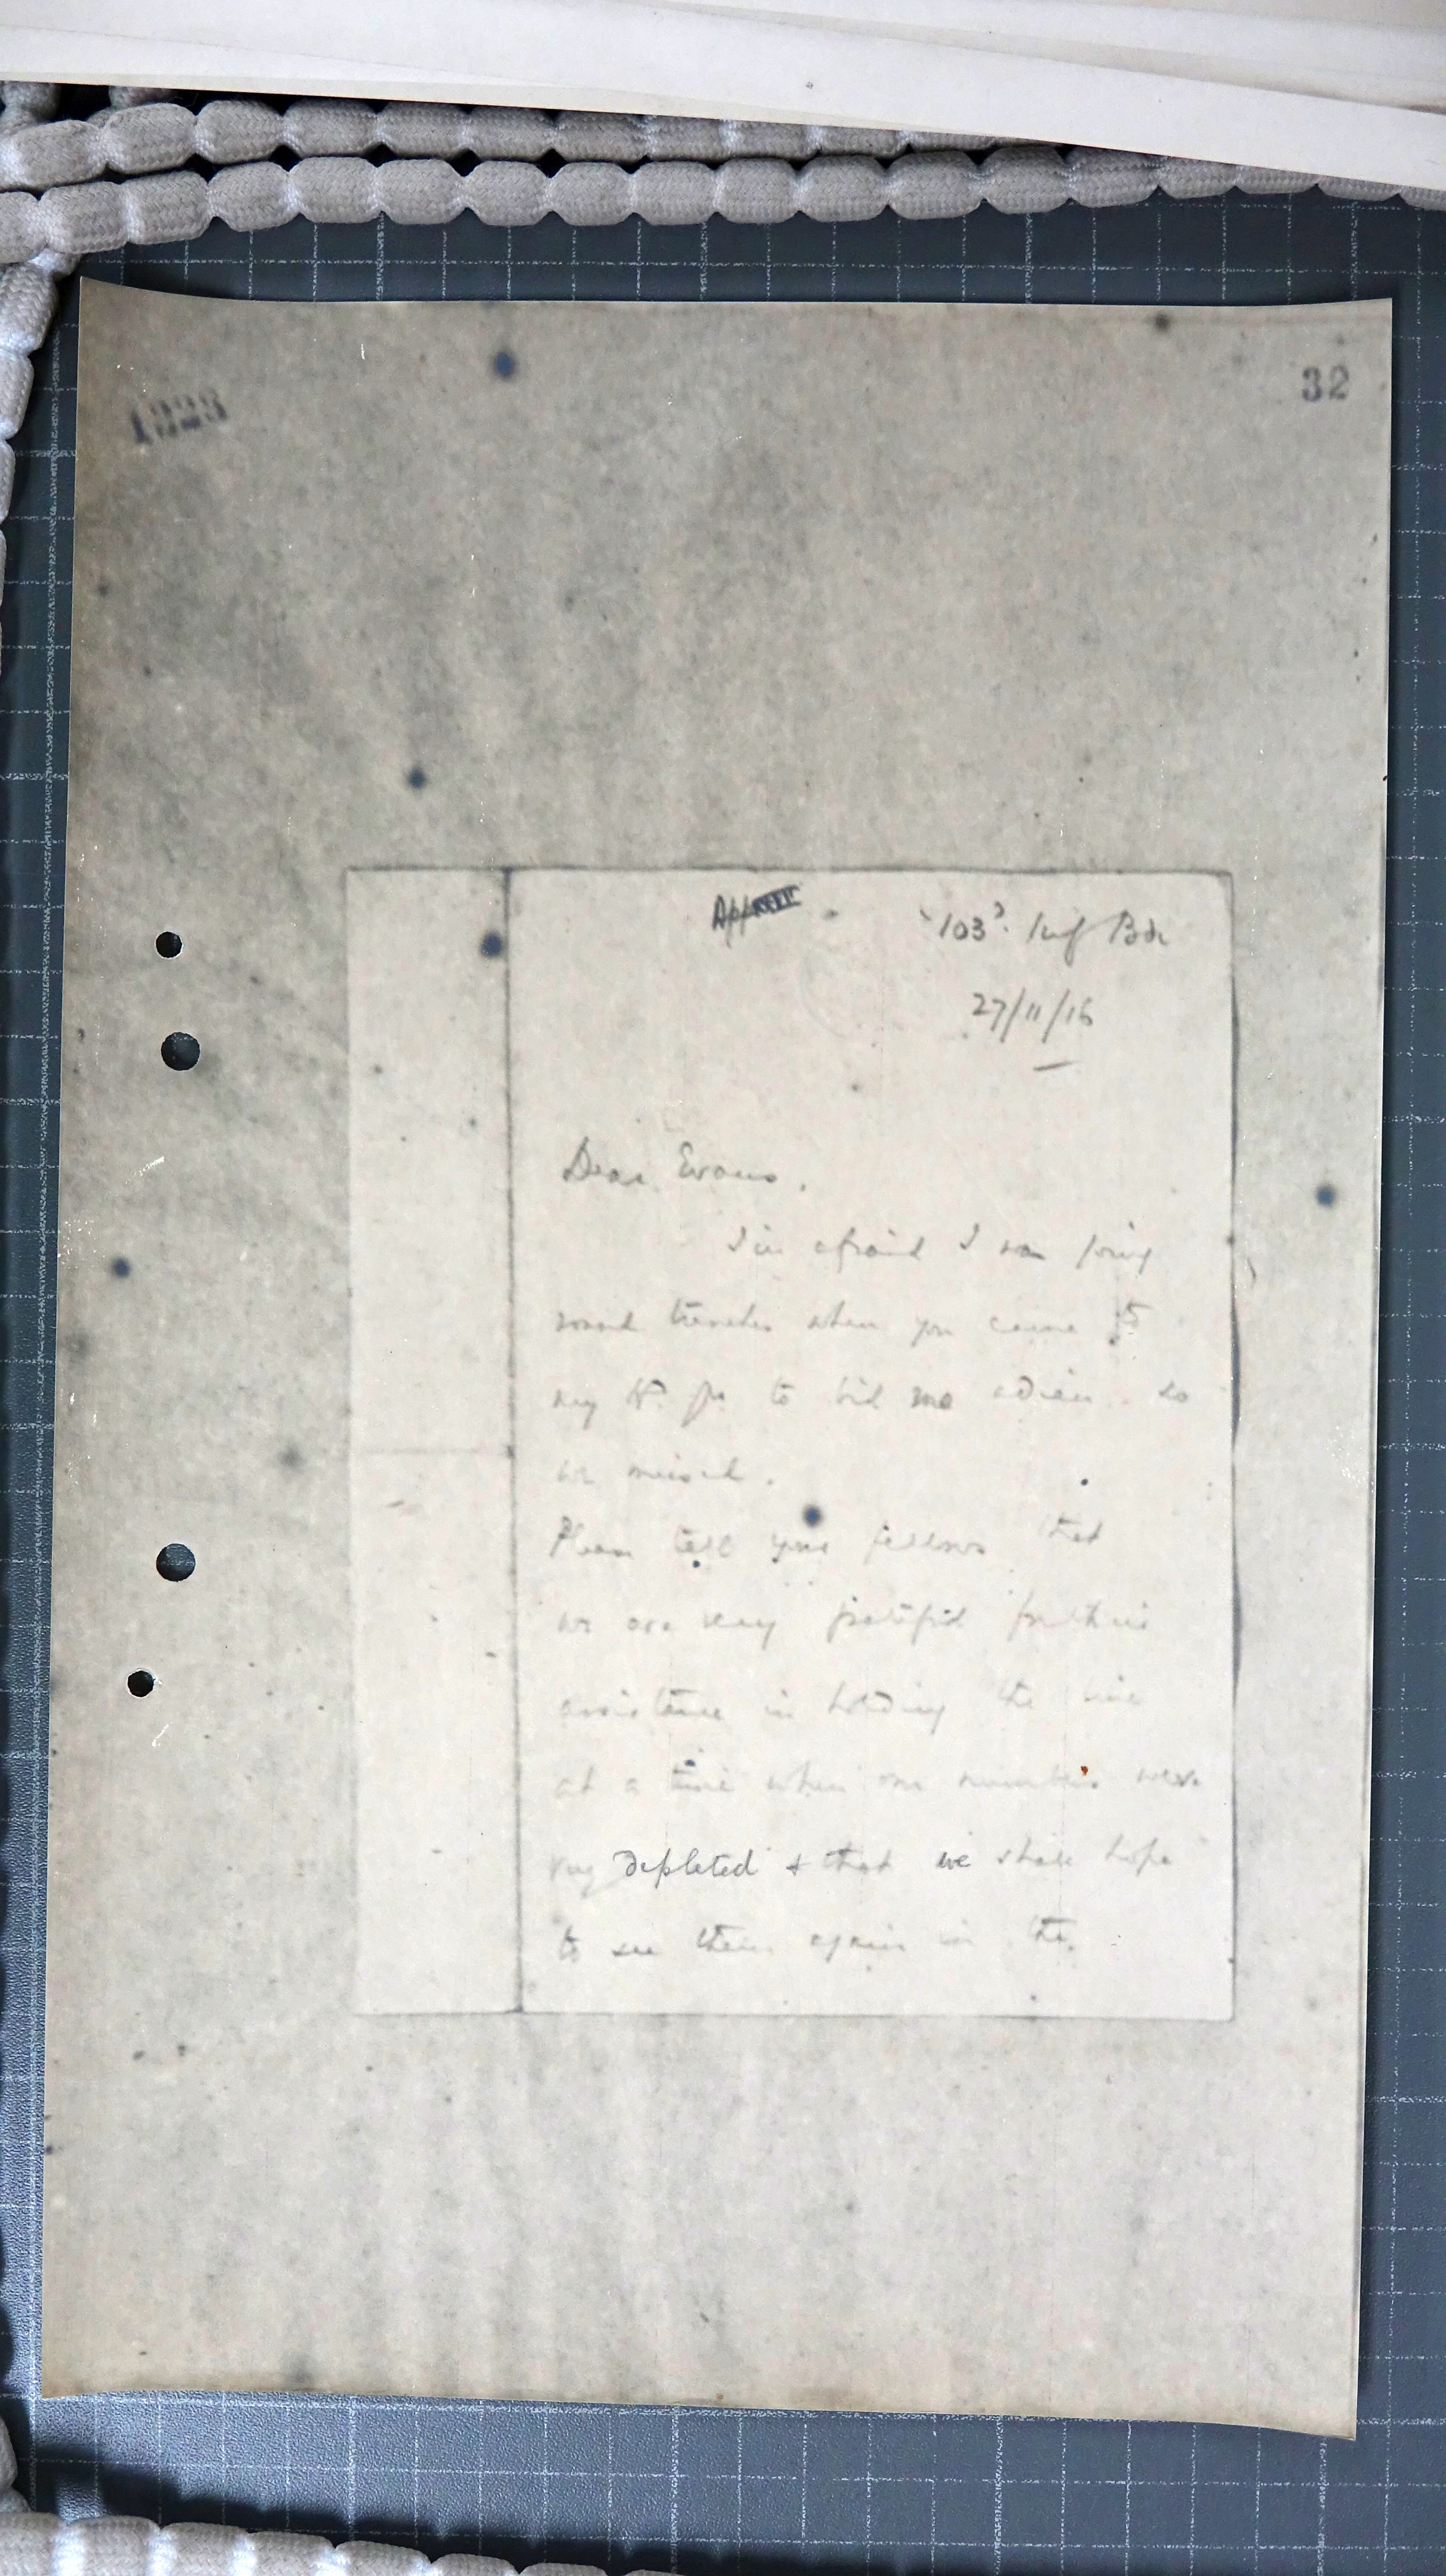 32
1323
App
"103". Inf Bde
27/11/16
Dear Evans.
I'm afraid I was going
round trenches when you came to
my H. Qu to bid me adieu. so
we missed.
Please tell your fellows that
we are very grateful for their
assistance in holding the line
at a time when our numbers were
very depleted & that we shall hope
to see them again in the.